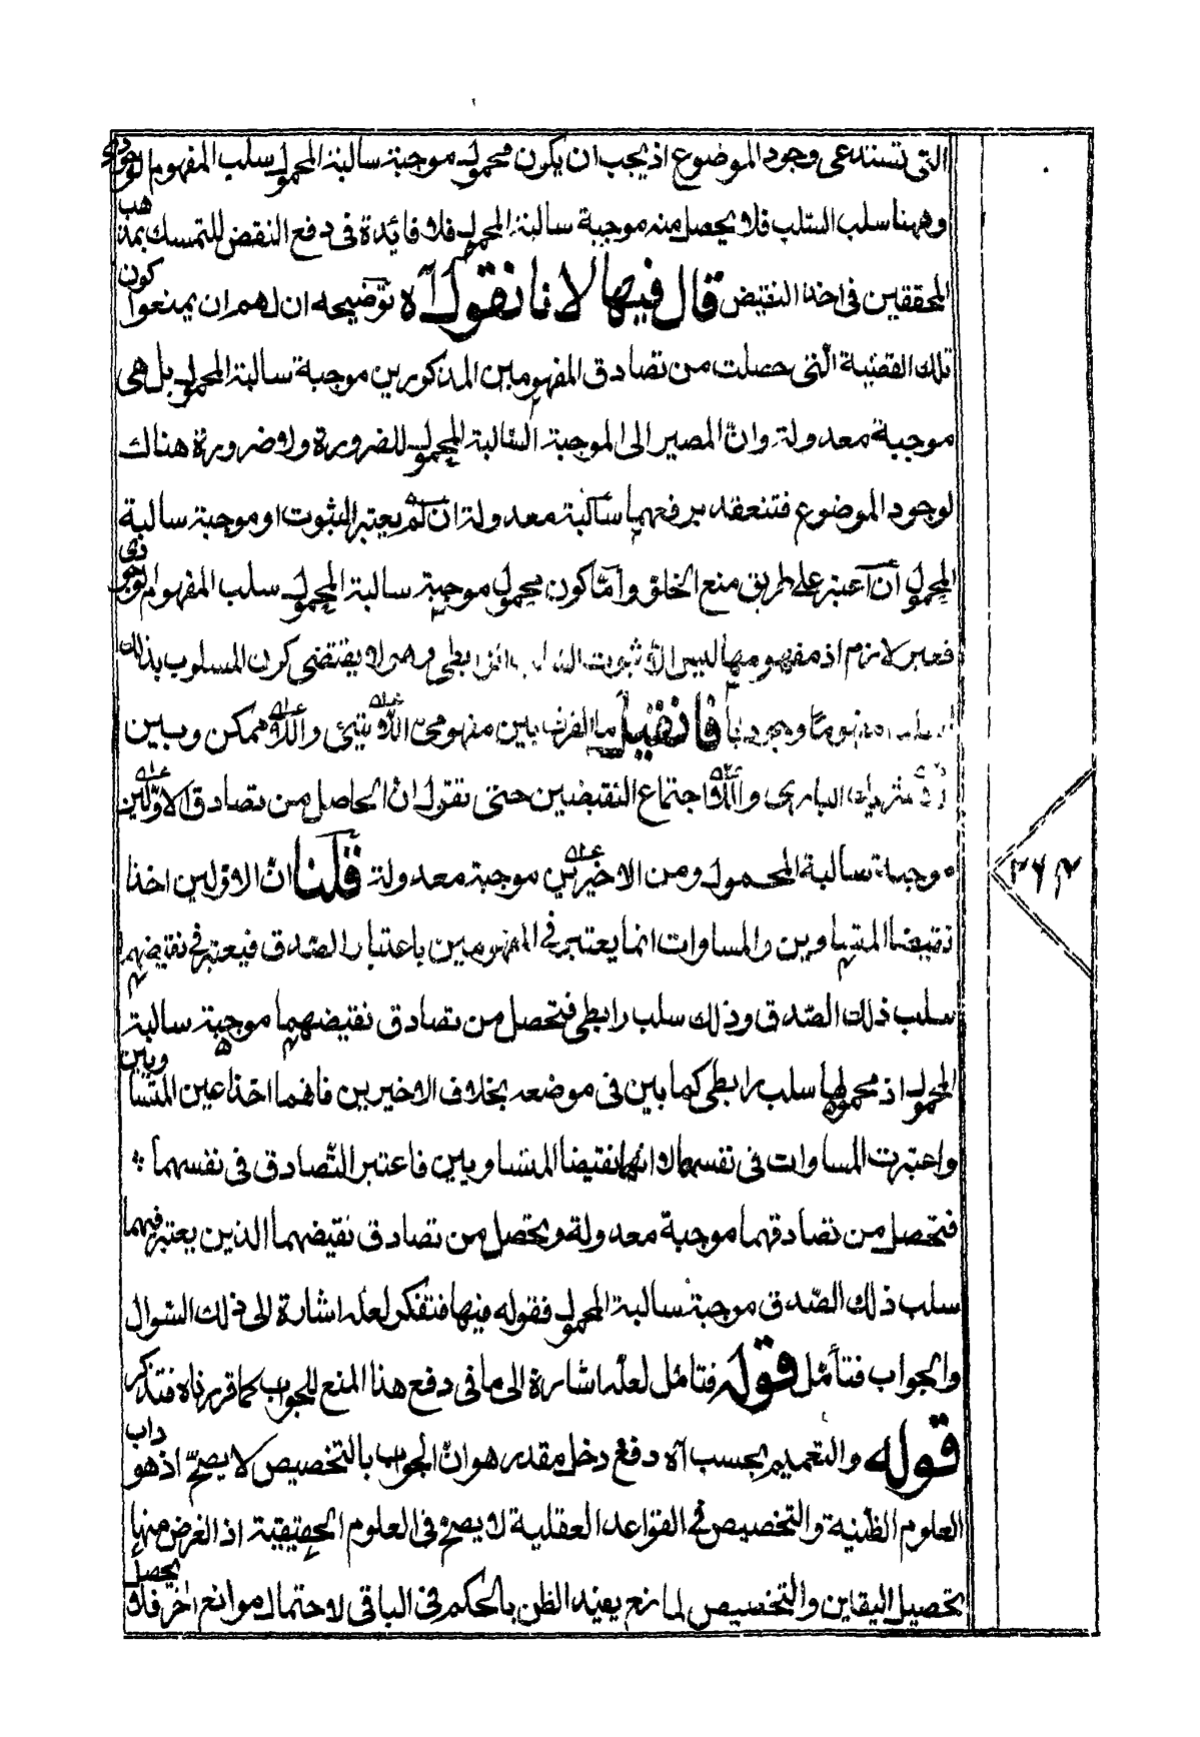 التى تستدعى وجود الموضوع اذ يجب ان يكون محمول موجبة سالبة المحمول سلب المفهوم الوجودى
وههنا سلب السلب فلا يحصل منه موجبة سالبة المحمول فلا فائدة فى دفع النقض للتمسك بمذهب
المحققين فى اخذ النقيض قال فيها لا نا نقول آه توضيحه ان لهم ان يمنعوا كون
تلك القضية التى حصلت من تصادق المفهومين المذكورين موجبة سالبة المحمول بل هى
موجبة معدولة وانّ المصير الى الموجبة السالبة المحمول للضرورة ولا ضرورة هناك
لوجود الموضوع فتنعقد برفعهما سالبة معدولة ان لم يعتبر الثبوت او موجبة سالبة
المحمول ان اعتبر على طريق منع الخلو وامّا كون محمول موجبة سالبة المحمول سلب المفهوم الوجودى
فغير لازم اذ مفهومها ليس الا ثبوت السلب الرابطى وهو لا يقتضى كون المسلوب بذلك
السلب مفهومًا وجوديا فان قيل ما الفرق بين مفهومى اللاشيئ واللاممكن وبين
شريك البارى واللااجتماع النقيضين حتى تقول انّ الحاصل من تصادق الاوّلين
موجبة سالبة المحمول ومن الاخيرين موجبة معدولة قلنا انّ الاوّلين اخذا
نقيضا المتساوين والمساوات انما يعتبر فى المفهومين باعتبار الصّدق فيعتبر فى نقيضهما
سلب ذلك الصّدق وذلك سلب رابطى فتحصل من تصادق نقيضهما موجبة سالبة
المحمول اذ محمولها سلب رابطى كما بين فى موضعه بخلاف الاخيرين فانهما اخذا عين المتساويين
واعتبرت المساوات فى نفسهما لا انهما نقيضا المتساويين فاعتبر التّصادق فى نفسهما
فتحصل من تصادقهما موجبة معدولة ويحصل من تصادق نقيضهما الذين يعتبر فيهما
سلب ذلك الصّدق موجبة سالبة المحمول فقوله فيها فتفكر لعله اشارة الى ذلك السّوال
والجواب فتأمّل قوله فتامّل لعله اشارة الى ما فى دفع هذا المنع للجواب كما قررناه فتذكر
قوله والتعميم بحسب آه دفع دخل مقدر هو انّ الجواب بالتخصيص لا يصحّ اذ هو داب
العلوم الظنية والتخصيص فى القواعد العقلية لا يصحّ فى العلوم الحقيقية اذ الغرض منها
تحصيل اليقين والتخصيص لمانع يفيد الظن بالحكم فى الباقى لاحتمال موانع اخر فلا يحصل